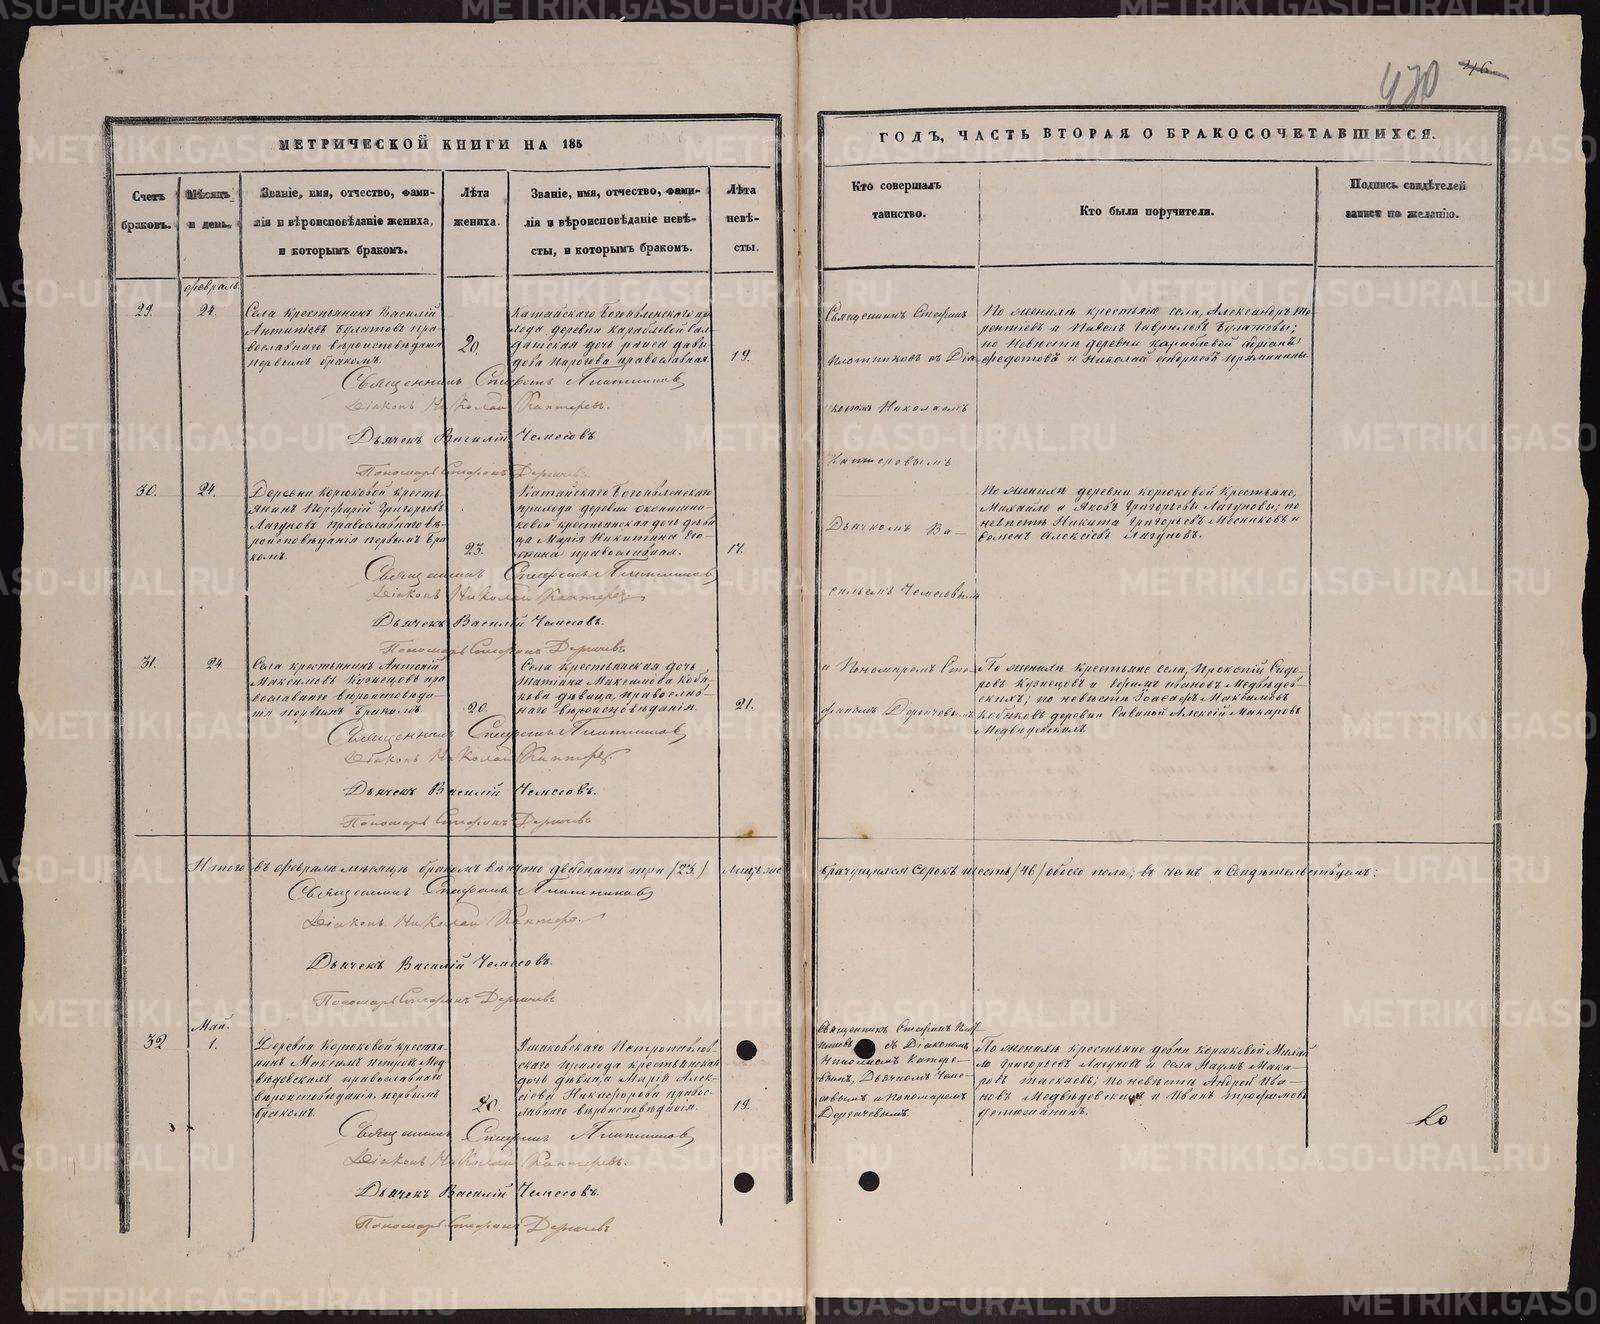 470 46
МЕТРИЧЕСКОЙ КНИГИ НА 185
ГОДЪ, ЧАСТЬ ВТОРАЯ О БРАКОСОЧЕТАВШИХСЯ.
Счетъ браковъ.
Мѣсяцъ и день.
Званіе, имя, отчество, фами-
лія и вѣроисповѣданіе жениха,
и которымъ бракомъ.
Лѣта
жениха.
Званіе, имя, отчество, фами-
лія и вѣроисповѣданіе невѣ-
сты, и которымъ бракомъ.
Лѣта
невѣ-
сты.
Кто совершалъ
таинство.
Кто были поручители.
Подпись свидѣтелей
записи по желанію.
февраль
29.
24.
Села крестьянинъ Василій
Антипіевъ Булатовъ пра-
вославнаго вѣроисповѣданія
первымъ бракомъ.
20.
Катайскаго Богоявленскаго при
хода деревни Караблевой Сол-
датская дочь раиса Давы-
дова православная
19.
Священникъ Стефанъ
Плотниковъ съ Діа
кономъ Николаемъ
Кантеровымъ
Дьячкомъ Ва-
сильемъ Чемесовымъ
и Пономаремъ Сте-
фаномъ Дерягчевымъ
По женихѣ крестьяне села, Александръ Те
рентіевъ и Павелъ Гавриловъ Булатовы;
по Невѣстѣ деревни караблевой адріанъ
федотовъ и Николай андреевъ
Священникъ Стефанъ Плотниковъ
Діаконъ Николай Кантеревъ.
Дьячекъ Василій Чемесовъ
Пономарь Стефанъ Дерягчевъ
30.
24.
Деревни Корюковой кресть
янинъ Порфирій Григорьевъ
Лагуновъ православнаго вѣ
роисповѣданія первымъ бра
комъ.
23.
Катайскаго Богоявленскаго
прихода деревни
ковой крестьянская дочь дѣви
ца Марія Никитина
православная.
17.
По женихѣ деревни корюковой Крестьяне,
Михайло и Яковъ Григорьевы Лагуновы; по
невѣстѣ Никита Григорьевъ Мосниковъ и
Семенъ Алексіевъ Лагуновъ.
Священникъ Стефанъ Плотниковъ
Діаконъ Николай Кантеревъ
Дьячекъ Василій Чемесовъ.
Пономарь Стефанъ Дерягчевъ
31.
24
Села крестьянинъ Антоній
Максимовъ Кузнецовъ пра
вославнаго вѣроисповѣда-
нія первымъ бракомъ.
20.
Села крестьянская дочь
Татіана Максимова Кобя-
кова дѣвица, православ-
наго вѣроисповѣданія.
21.
По женихѣ крестьяне села, Прокопій Сидо-
ровъ Кузнецовъ и Ефимъ Ивановъ Медвѣдев-
скихъ; по невѣстѣ Іоасафъ Максимовъ
Кобяковъ деревни Савиной Алексій Макаровъ
Медвѣдевскихъ.
Священникъ Стефанъ Плотниковъ
Діаконъ Николай Кантеревъ.
Дьячекъ Василій Чемесовъ.
Пономарь Стефанъ Дерягчевъ
Итого въ февралѣ мѣсяцѣ браковъ вѣнчано двадцать три /23./ лицъ же брачущихся сорокъ шесть /46/ обоего пола; въ чемъ и Свидѣтельствуемъ:
Священникъ Стефанъ Плотниковъ
Діаконъ Николай Кантеревъ
Дьячекъ Василій Чемесовъ.
Пономарь Стефанъ Дерягчевъ
Май.
32
1.
Деревни Корюковой крестья-
нинъ Максимъ Петровъ Мед-
вѣдевскихъ православнаго
вѣроисповѣданія, первымъ
бракомъ.
20.
Ушаковскаго Петропавлов-
скаго прихода крестьянская
дочь дѣвица Марія Алек-
сіева Никифорова правос-
лавнаго вѣроисповѣданія.
19.
Священникъ Стефанъ Плот
никовъ съ Діакономъ
Николаемъ Кантере-
вымъ, Дьячкомъ Чеме-
совымъ и Пономаремъ
Дерягчевымъ.
По женихѣ крестьяне девни Корюковой Михай
ло Григорьевъ Лагуновъ и села Наумъ Мака-
ровъ таскаевъ; по невѣстѣ Андрей Ива-
новъ Медвѣдевскихъ и Иванъ трофимовъ
Священникъ Стефанъ Плотниковъ
Діаконъ Николай Кантеревъ.
Дьячекъ Василій Чемесовъ.
Пономарь Стефанъ Дерягчевъ
METRIKI.GASO-URAL.RU